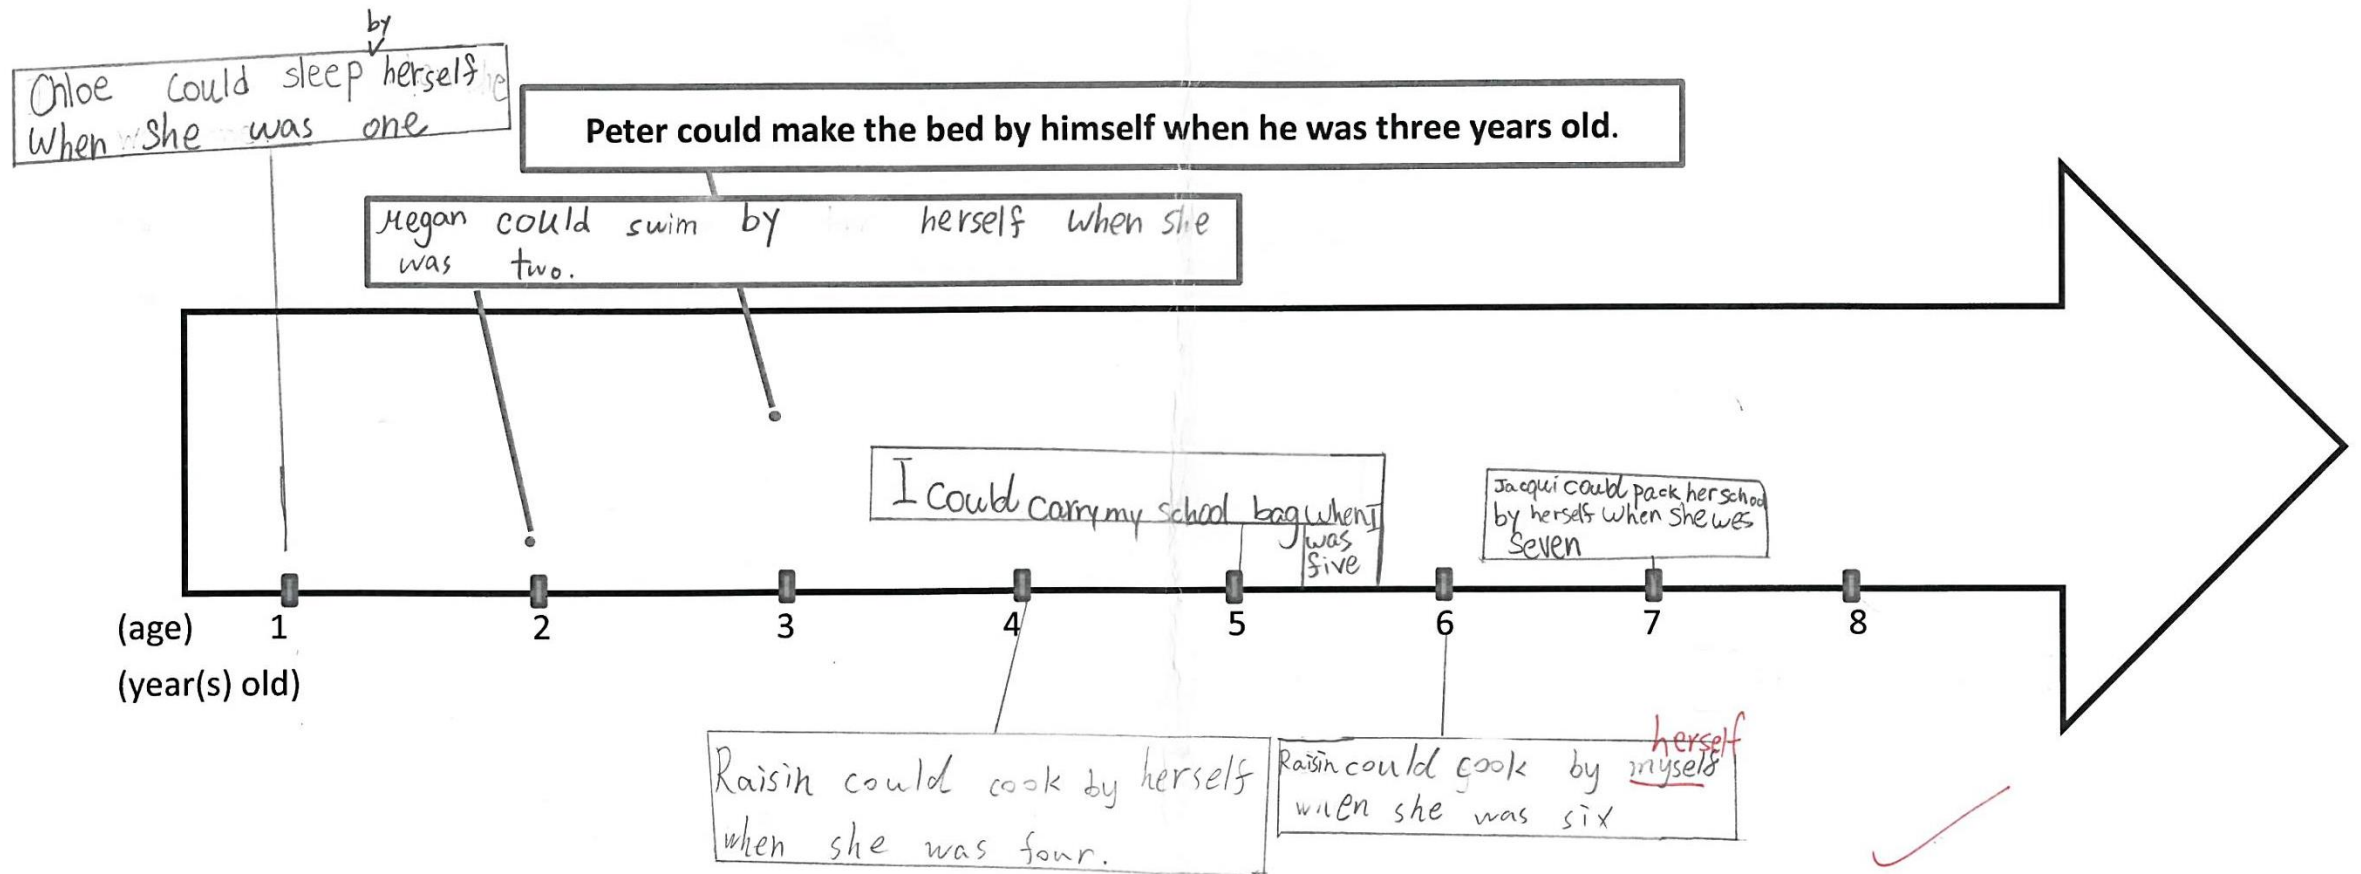 by
Chloe could sleep herself
When she was one
Peter could make the bed by himself when he was three years old.
Megan could swim by herself when she
was two.
I could carry my school bag when I
was
five
Jacqui could pack her school
by herself when she wes
seven
(age) 1 2 3 4 5 6 7 8
(year(s) old)
herself
Raisin could cook by herself
when she was four.
Raisin could cook by myself
when she was six